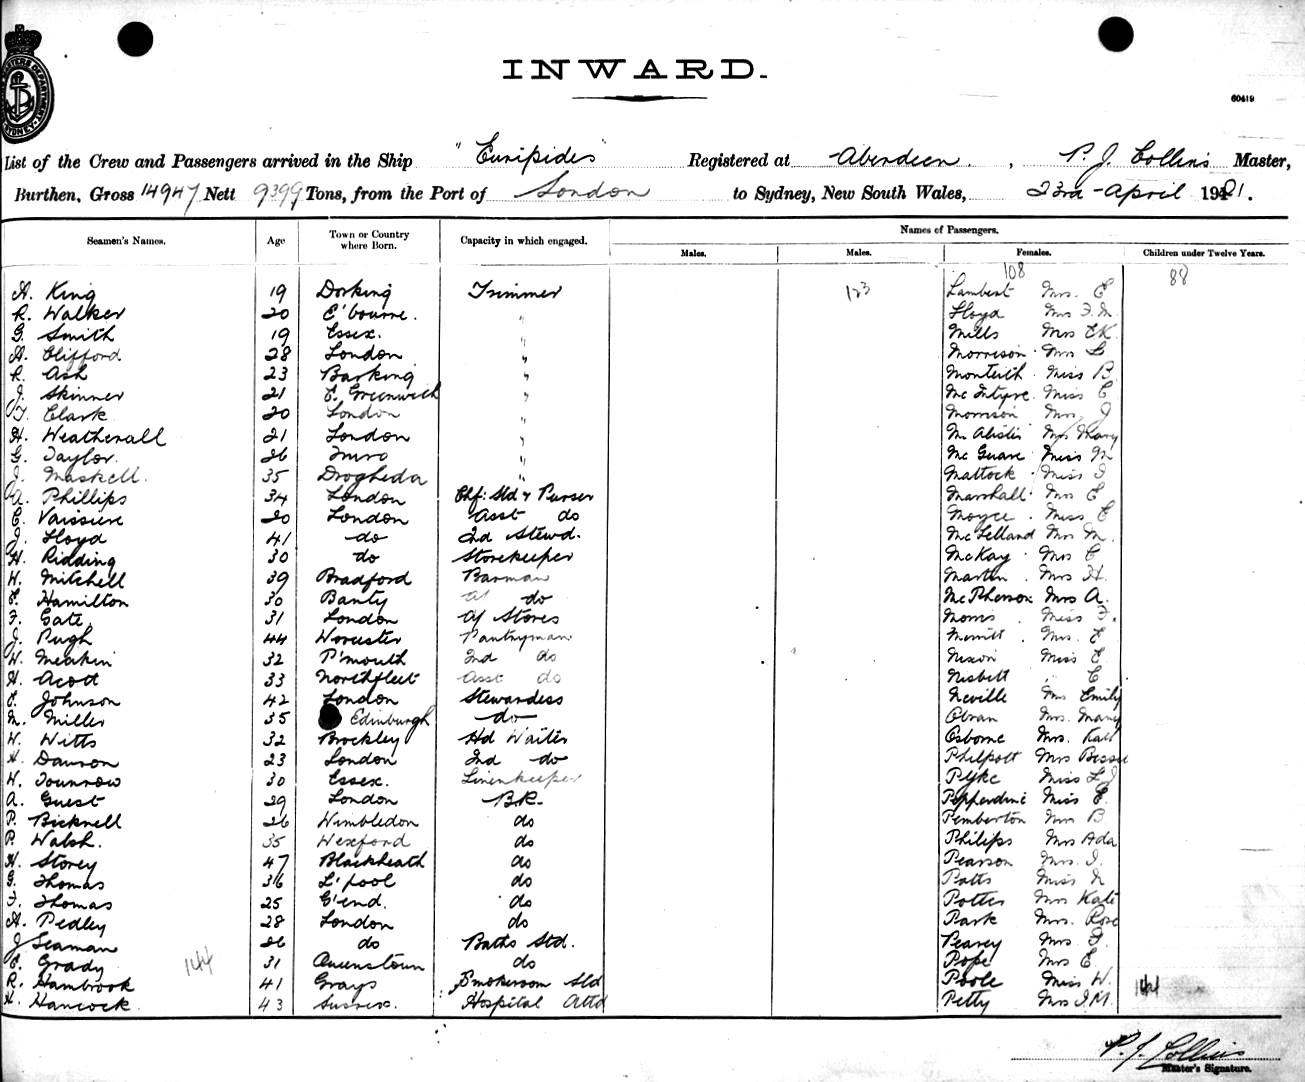 INWARD.
60419
List of the Crew and Passengers arrived in the Ship "Euripides" Registered at Aberdeen, P. J. Collins Master,
Burthen, Gross 14947 Nett 9399 Tons, from the Port of London to Sydney, New South Wales, 23rd April 1921.
Seamen's Names. Age Town or Country where Born. Capacity in which engaged. Names of Passengers.
Males. Males. Females. Children under Twelve Years.
108 88
A. King 19 Dorking Trimmer 123 Lambert Mrs. E
R. Walker 20 E'bourne. " Lloyd Mrs F. M.
G. Smith 19 Essex. " Mills Mrs EK
A. Clifford 28 London " Morrison Mrs L
R. Ash 23 Barking " Monteith Miss B
J. Skinner 21 E. Greenwich " McIntyre Miss E
T. Clark 20 London " Morrison Mrs J
H. Weatherall 21 London " Mrs Mary
G. Taylor. 26 Truro " Miss M
J. Maskell. 35 Drogheda " Mattock Miss I
A. Phillips 34 London Chf: Std & Purser Marshall Mrs E
E. Vaissiere 20 London Asst do Moyce Miss E
J. Lloyd 41 do 2nd Stewd. McLelland Mrs M.
H. Ridding 30 do Storekeeper McKay Mrs C
W. Mitchell 39 Bradford Barman Martin Mrs H.
E. Hamilton 30 Banty do McPherson Mrs A.
F. Gate 31 London A/ Stores Morris Miss F.
J. Pugh 44 Worcester Pantryman Merritt Mrs. E
W. Meakin 32 P'mouth 2nd do Nixon Miss E
H. Acott 33 Northfleet Asst do Nesbitt " E
E. Johnson 42 London Stewardess Neville Mrs Emily
M. Miller 35 Edinburgh do Mrs. Mary
W. Witts 32 Brockley Hd Waiter Osborne Mrs. Kate
H. Dawson 23 London 2nd do Philpott Mrs Bessie
W. Tournrow 30 Essex. Linenkeeper Pyke Miss L J
A. Guest 29 London B.R. Pepperdine Miss E.
P. Bicknell 26 Wimbledon do Pemberton Mrs B
P. Walsh. 35 Wexford do Philips Mrs Ada
H. Storey 47 Blackheath do Pearson Mrs. I.
G. Thomas 36 L'pool do Potts Miss N
F. Thomas 25 G'end. do Potter Mrs Kate
A. Pedley 28 London do Park Mrs. Rose
J Seaman 26 do Baths Std. Pearcy Mrs. F.
E. Grady 144 31 Queenstown do Pope Mrs E.
R. Hambrook 41 Grays Smokeroom Std Poole Miss W. 141
H. Hancock 43 Sussex. Hospital Attd Petty Mrs I.M.
P. J. Collins
Master's Signature.